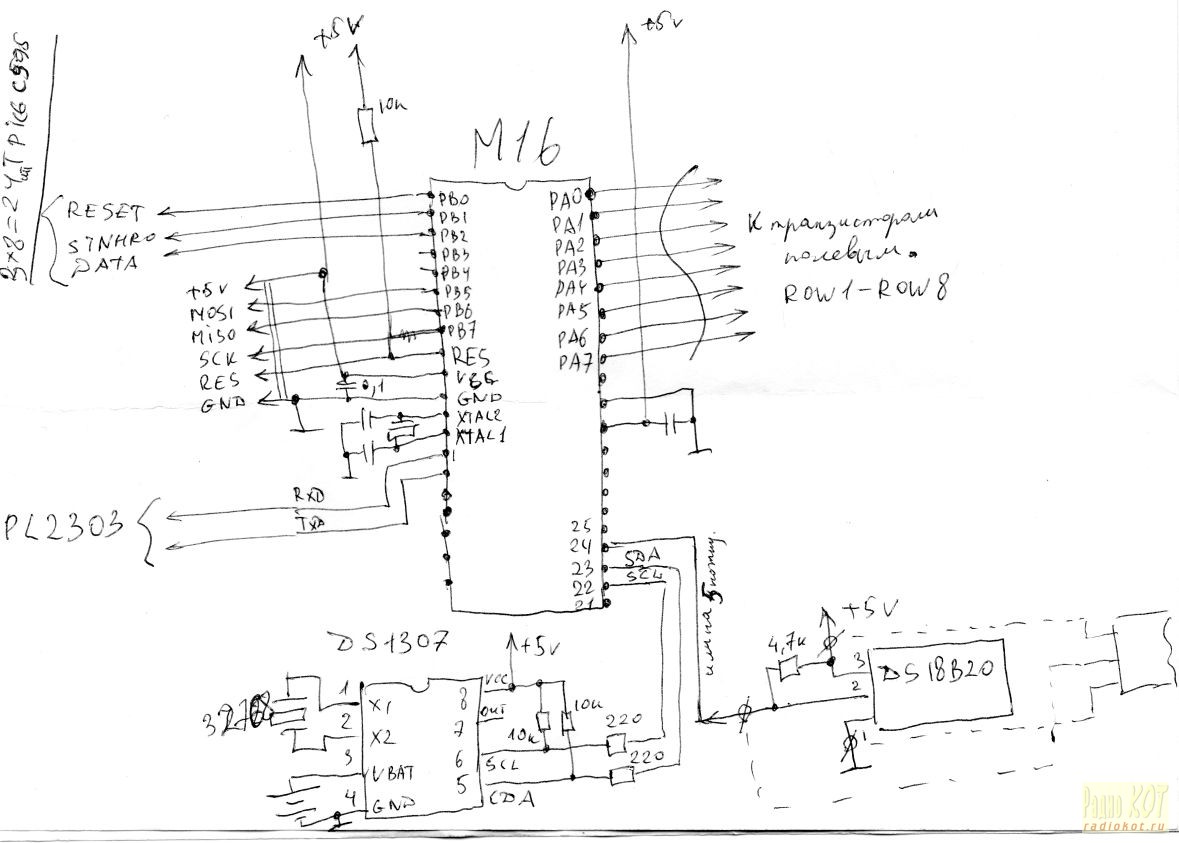 +5V
+5V
10к
M16
3×8=24
RESET
SINHRO
DATA
+5V
MOSI
MISO
SCK
RES
GND
0,1
PB0
PB1
PB2
PB3
PB4
PB5
PB6
PB7
RES
GND
XTAL2
XTAL1
PA0
PA1
PA2
PA3
PA4
PA5
PA6
PA7
К транзисторам
полевым.
ROW1-ROW8
PL2303
RXD
TXD
25
24
23
22
21
SDA
SCL
или на 5 ножку.
DS1307
+5V
1
2
3
4
X1
X2
VBAT
GND
8
7
6
5
VCC
OUT
SCL
10к
10к
220
220
+5V
4,7к
3
2
1
DS18B20
Радио КОТ
radiokot.ru